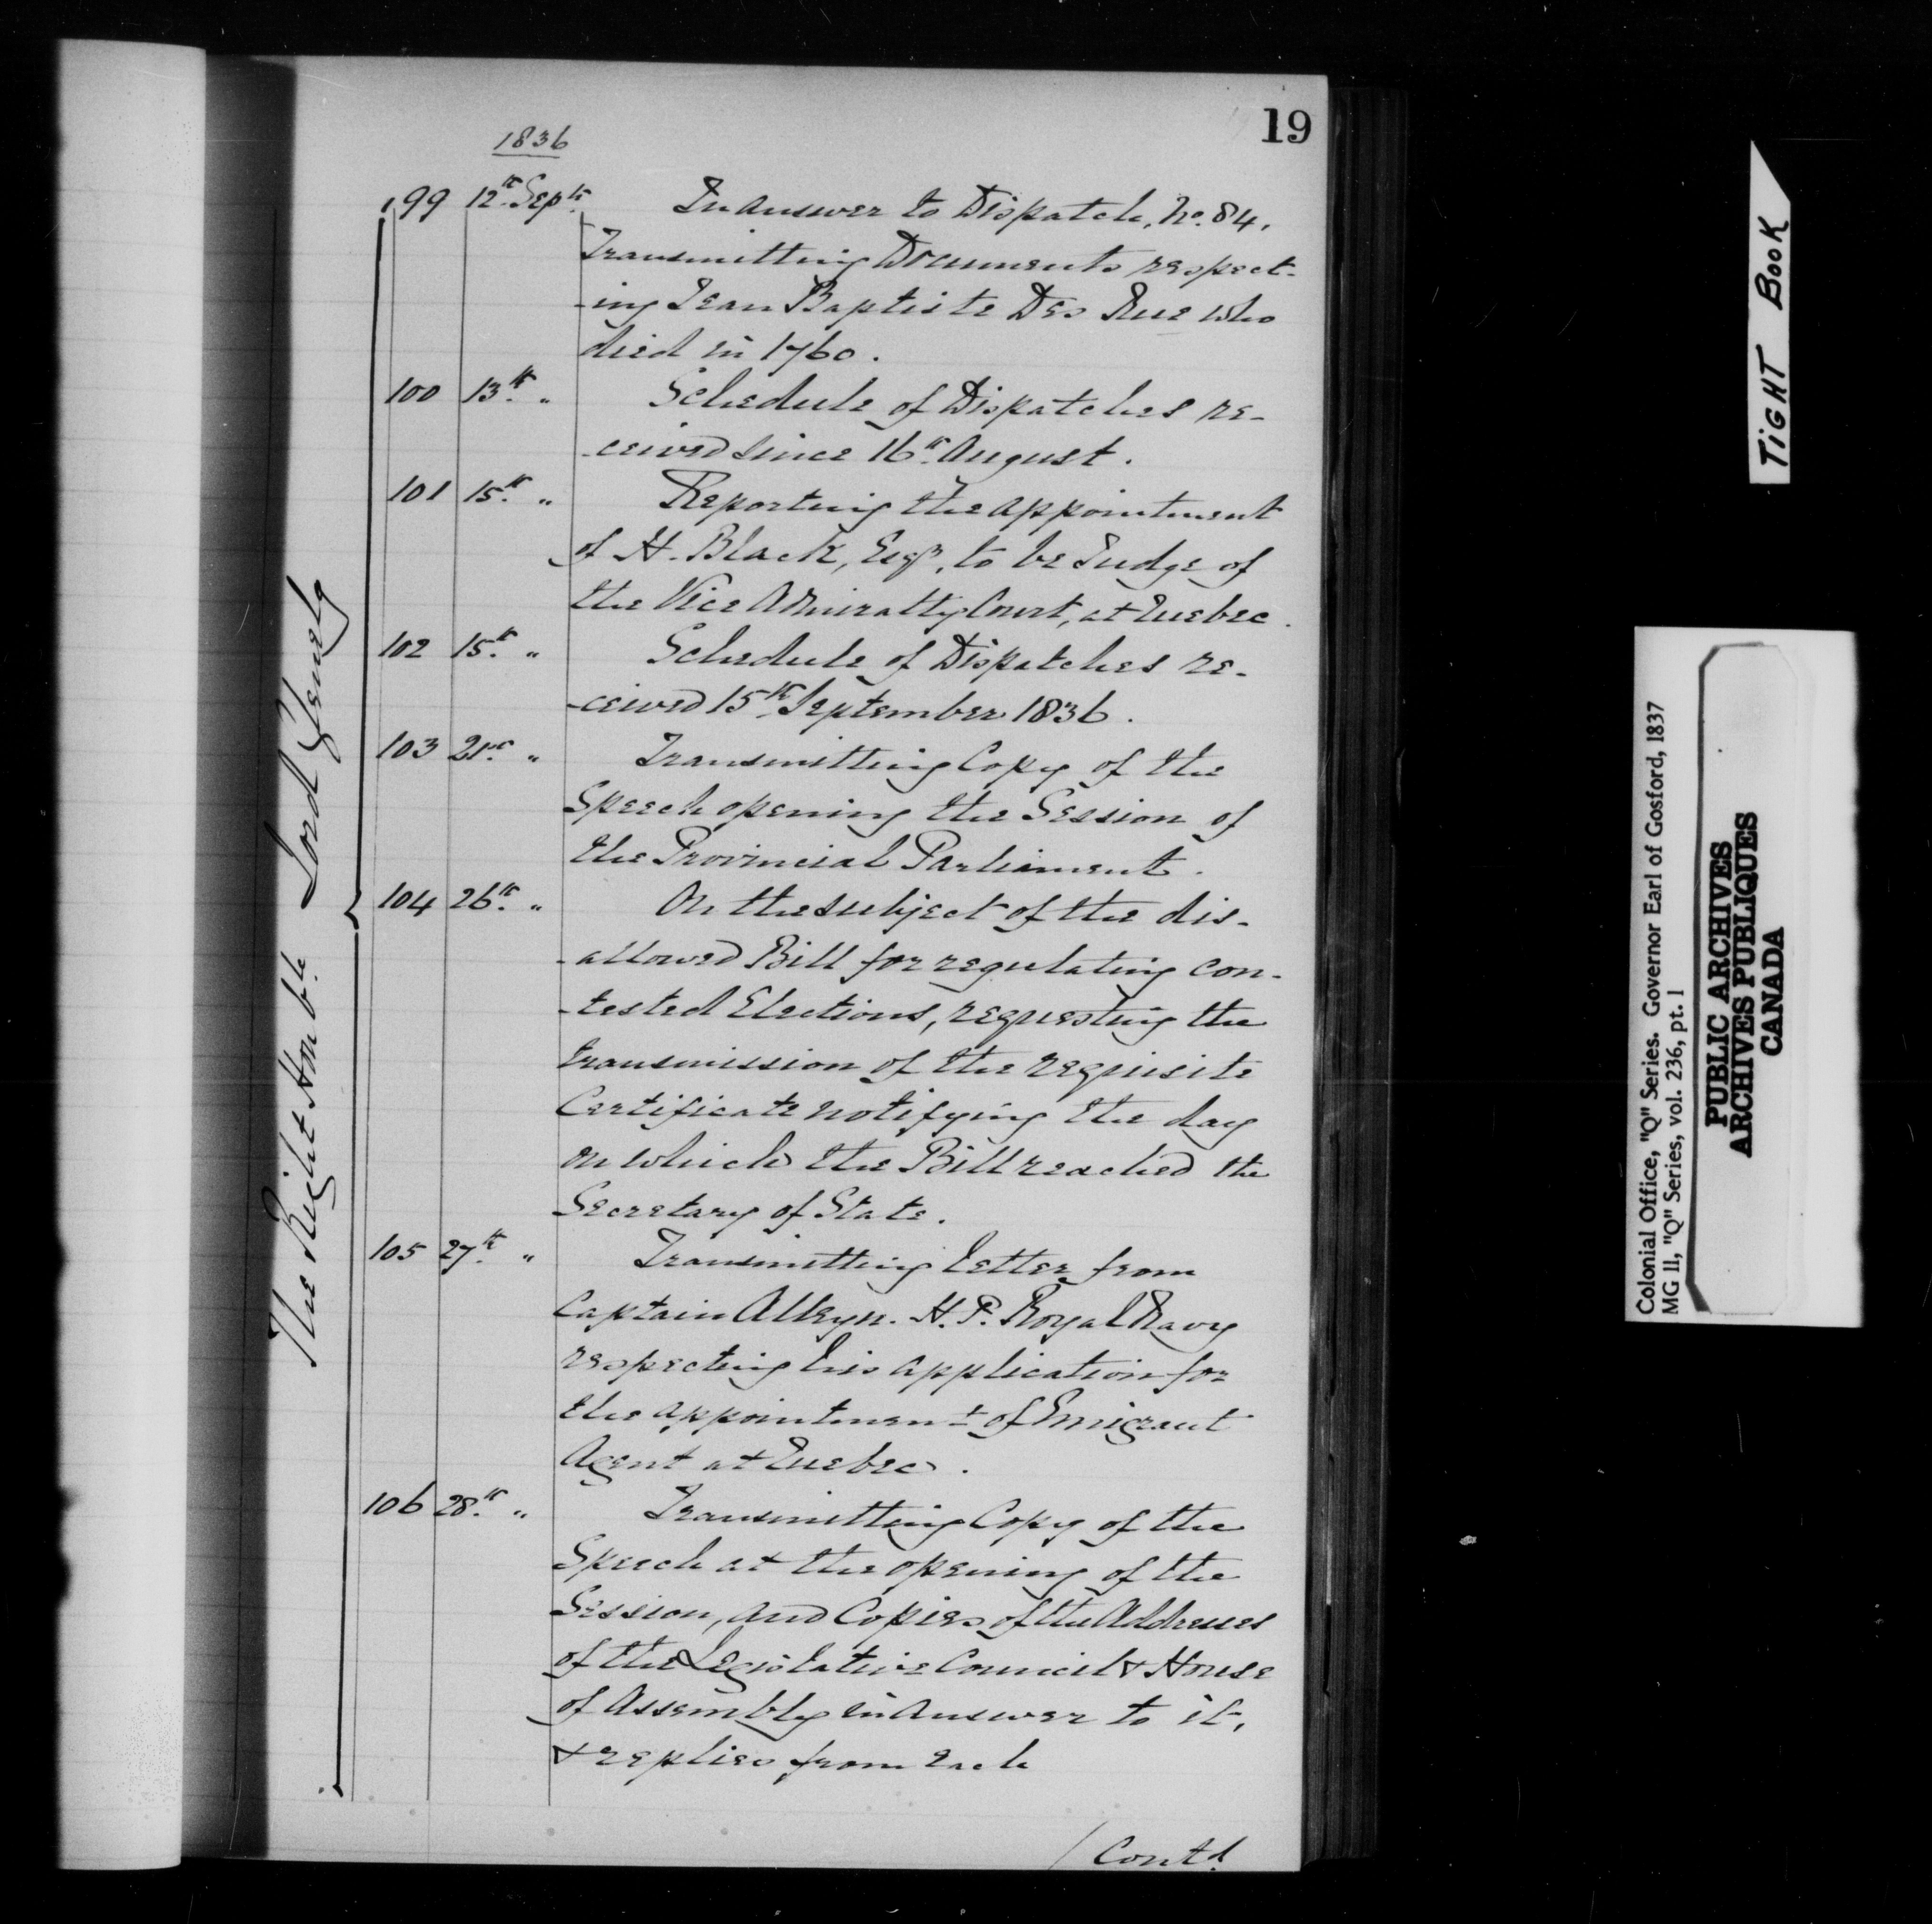 19
1836
The Right Honble. Lord Glenelg
99 12th. Sept. In answer to Dispatch, No. 84,
Transmitting Documents respect-
-ing Jean Baptiste Des Rue who
died in 1760.
100 13th. " Schedule of Dispatches re-
-ceived since 16th. August.
101 15th. " Reporting the appointment
of H. Black, Esqr, to be Judge of
the Vice Admiralty Court, at Quebec.
102 15th. " Schedule of Dispatches re-
-ceived 15th. September 1836.
103 21st. " Transmitting Copy of the
Speech opening the Session of
the Provincial Parliament.
104 26th. " On the subject of the dis-
-allowed Bill for regulating con-
-tested Elections, requesting the
transmission of the requisite
Certificate notifying the day
on which the Bill reached the
Secretary of State.
105 27th. " Transmitting letter from
Captain Alleyn. H. P. Royal Navy
respecting his application for
the appointment of Emigrant
Agent at Quebec.
106 28th. " Transmitting Copy of the
Speech at the opening of the
Session, and Copies of the Addresses
of the Legislative Council & House
of Assembly in answer to it,
& replies from each
/ Contd.
TIGHT BOOK
Colonial Office, "Q" Series. Governor Earl of Gosford, 1837
MG 11, "Q" Series, vol. 236, pt. 1
PUBLIC ARCHIVES
ARCHIVES PUBLIQUES
CANADA